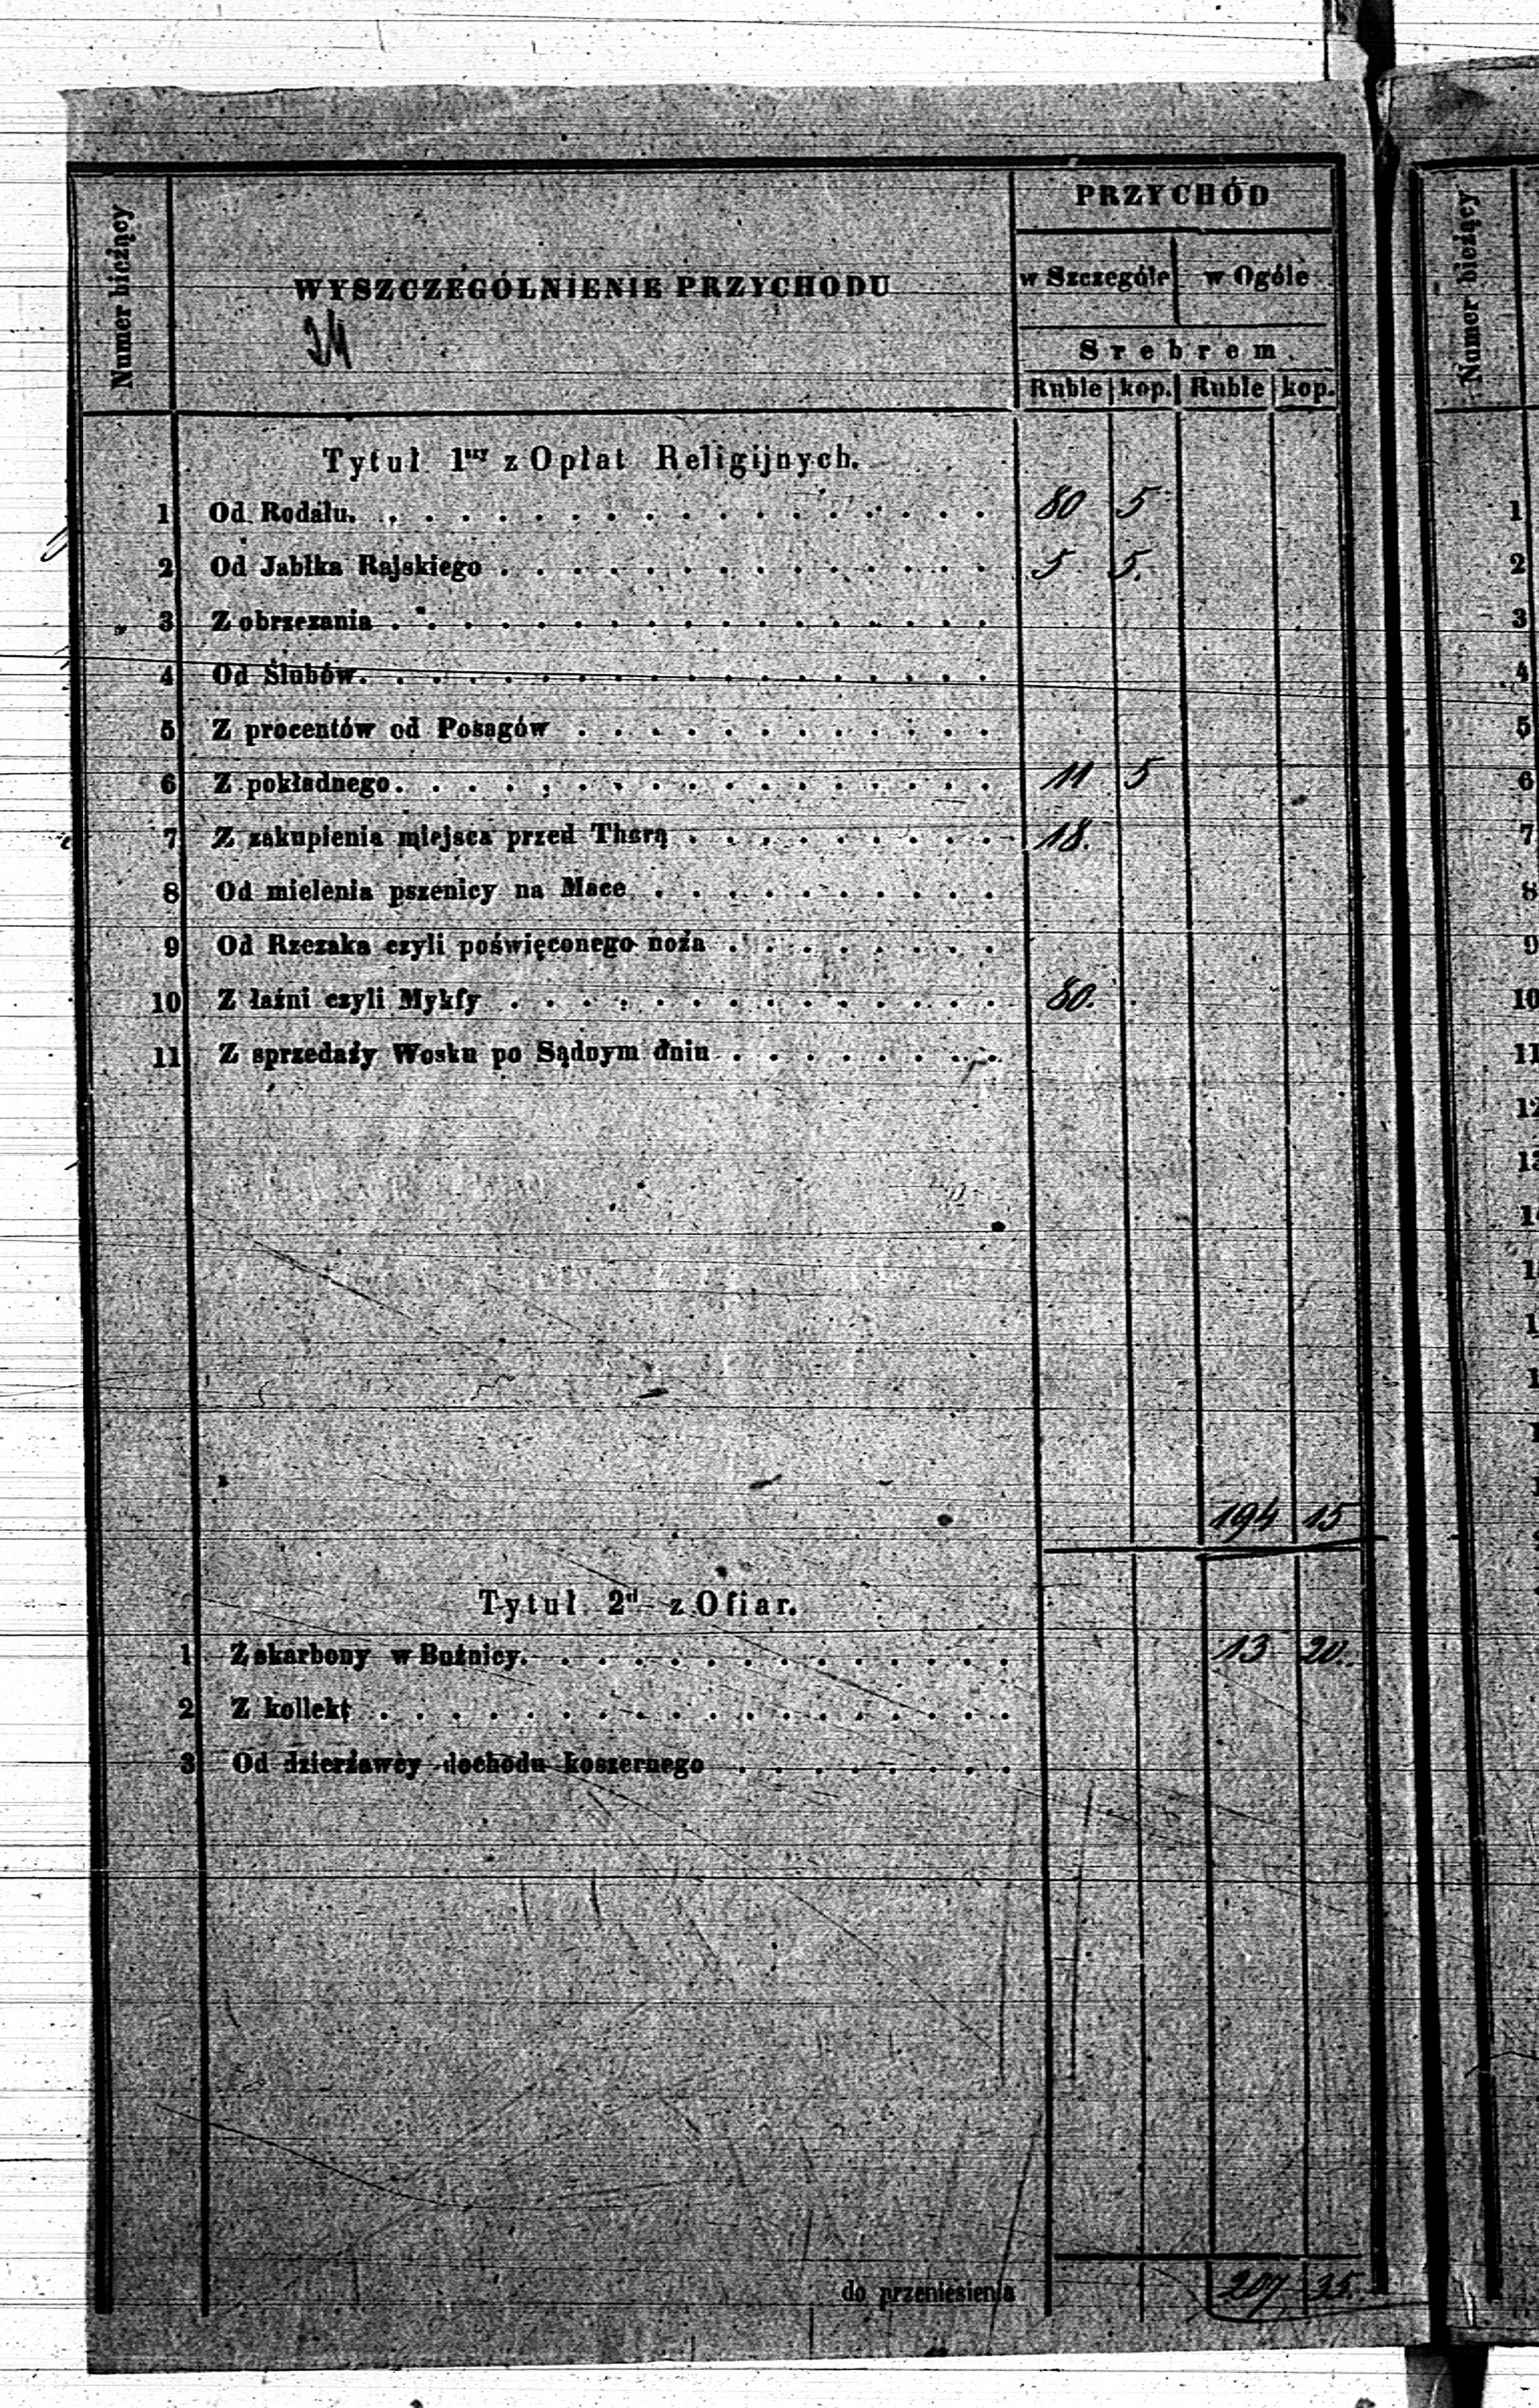 Numer bieżący
WYSZCZEGÓLNIENIE PRZYCHODU
24
PRZYCHÓD
w Szczególe w Ogóle
Srebrem
Ruble kop. Ruble kop.
Tytuł 1szy z Opłat Religijnych.
1 Od Rodału. 80 5
2 Od Jabłka Rajskiego 5 5.
3 Z obrzezania
4 Od Ślubów.
5 Z procentów od Posagów
6 Z pokładnego. 11 5
7 Z zakupienia miejsca przed Thorą 18.
8 Od mielenia pszenicy na Mace
9 Od Rzezaka czyli poświęconego noża
10 Z łaźni czyli Mykfy 80.
11 Z sprzedaży Wosku po Sądnym dniu
194 15
Tytuł 2gi z Ofiar.
1 Z skarbony w Buźnicy. 13 20.
2 Z kollekt
3 Od dzierżawcy dochodu koszernego
do przeniesienia 207 35.
Numer bieżący
1
2
3
4
5
6
7
8
9
10
11